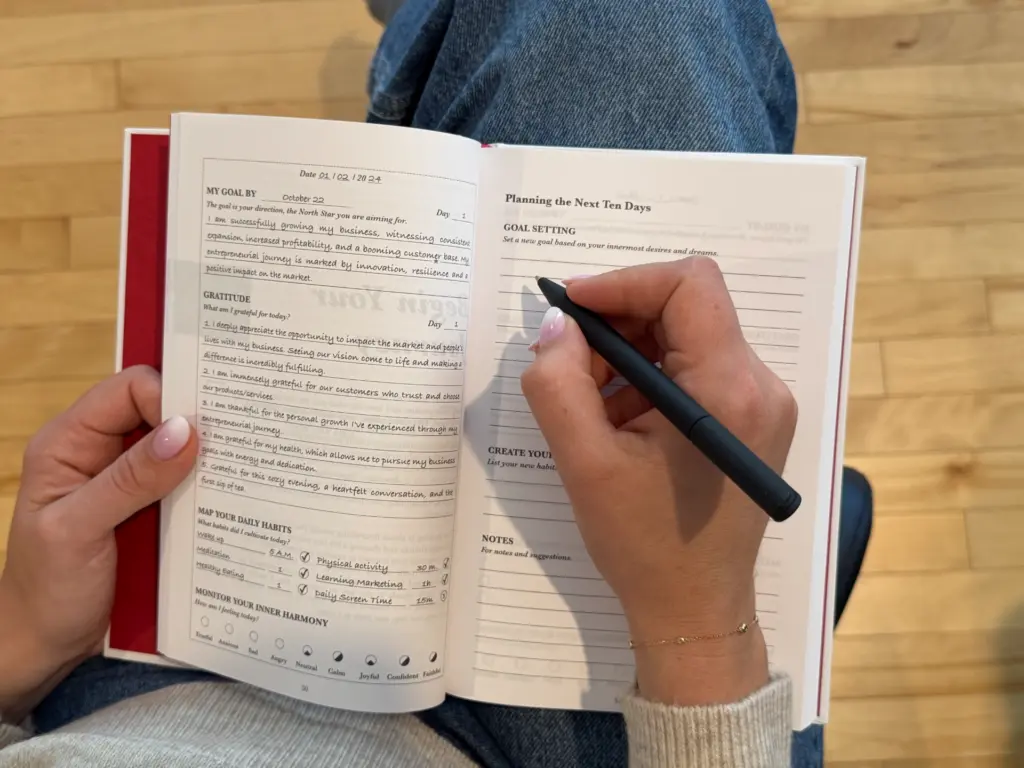 Date 01 / 02 / 2024
MY GOAL BY October 22
The goal is your direction, the North Star you are aiming for. Day 1
I am successfully growing my business, witnessing consistent
expansion, increased profitability, and a booming customer base. My
entrepreneurial journey is marked by innovation, resilience and a
positive impact on the market.
GRATITUDE
What am I grateful for today? Day 1
1. I deeply appreciate the opportunity to impact the market and people's
lives with my business. Seeing our vision come to life and making a
difference is incredibly fulfilling.
2. I am immensely grateful for our customers who trust and choose
our products/services.
3. I am thankful for the personal growth I've experienced through my
entrepreneurial journey.
4. I am grateful for my health, which allows me to pursue my business
goals with energy and dedication.
5. Grateful for this cozy evening, a heartfelt conversation, and the
first sip of tea.
MAP YOUR DAILY HABITS
What habits did I cultivate today?
Wake up 5 A.M. Physical activity 30 m.
Meditation 1 Learning Marketing 1h
Healthy Eating 1 Daily Screen Time 15m
MONITOR YOUR INNER HARMONY
How am I feeling today?
Tearful Anxious Sad Angry Neutral Calm Joyful Confident
Planning the Next Ten Days
GOAL SETTING
Set a new goal based on your innermost desires and dreams.
CREATE YOUR
List your new habit
NOTES
For notes and suggestions.